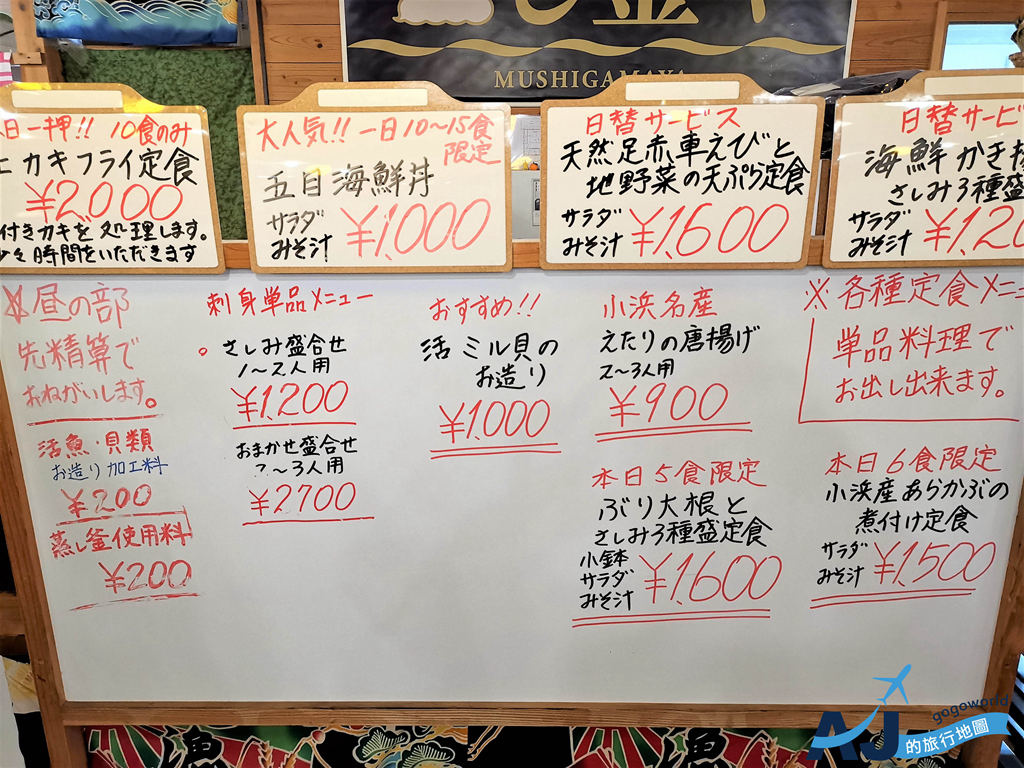 MUSHIGAMAYA
日一押!! 10食のみ
カキフライ定食
¥2,000
付きカキを処理します。
少々時間をいただきます
大人気!! 一日10〜15食
限定
五目海鮮丼
サラダ
みそ汁
¥1,000
日替サービス
天然足赤車えびと
地野菜の天ぷら定食
サラダ
みそ汁
¥1,600
日替サービ
海鮮かき
さしみ3種盛
サラダ
みそ汁
¥1,20
昼の部
先精算で
おねがいします。
活魚・貝類
お造り加工料
¥200
蒸し釜使用料
¥200
刺身単品メニュー
さしみ盛合せ
1〜2人用
¥1,200
おまかせ盛合せ
2〜3人用
¥2700
おすすめ!!
活ミル貝の
お造り
¥1,000
小浜名産
えたりの唐揚げ
2〜3人用
¥900
本日5食限定
ぶり大根と
さしみ3種盛定食
小鉢
サラダ
みそ汁
¥1,600
※各種定食メニュ
単品料理で
お出し出来ます。
本日6食限定
小浜産あらかぶの
煮付け定食
サラダ
みそ汁
¥1,500
AJ gogoworld
的旅行地圖